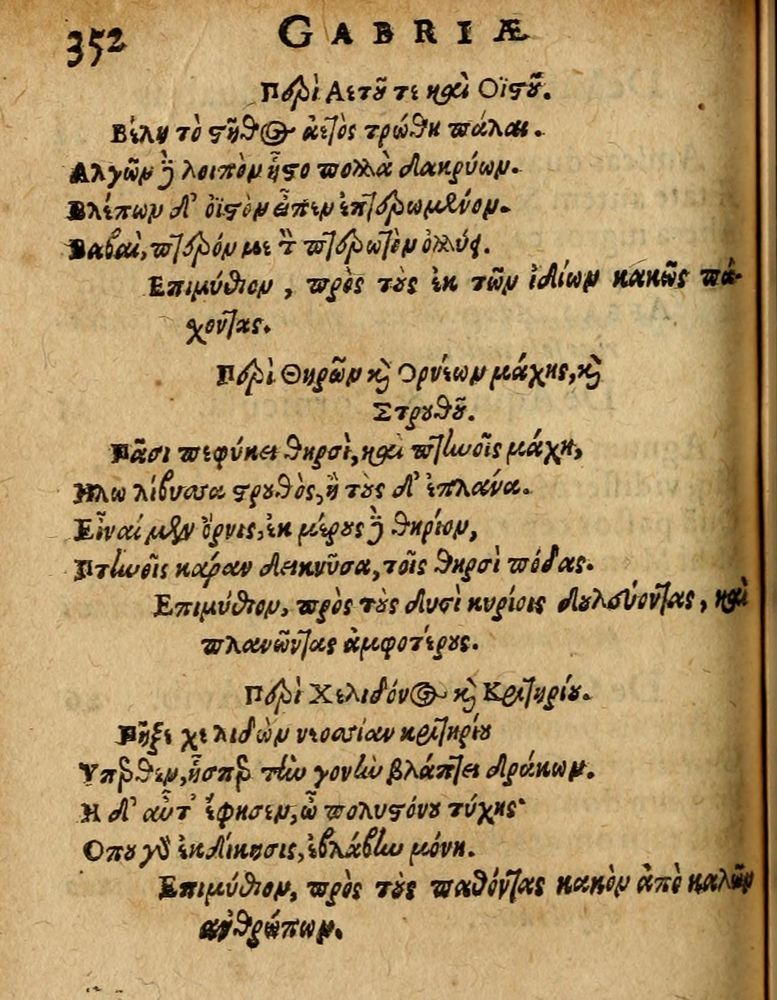 352 GABRIÆ
Περὶ Αετοῦ τε καὶ Οϊστοῦ.
Βέλη τὸ στῆθος ἀετὸς τρώθη πάλαι.
Αλγῶν δὲ λοιπὸν ἧστο πολλὰ δακρύων.
Βλέπων δ' ὀϊστὸν εἶπεν ἐπτερωμένον.
Βαβαὶ, πτερόν με τ πτερωτὸν ὀλλύει.
Επιμύθιον, πρὸς τοὺς ἐκ τῶν ἰδίων κακῶς πά-
χοντας.
Περὶ Θηρῶν καὶ Ορνέων μάχης, καὶ
Στρουθοῦ.
Πᾶσι πεφύκει θηρσὶ, καὶ πτηνοῖς μάχη,
Ηλω λίβυσσα στρουθὸς, ἣ τοὺς δ' ἐπλάνα.
Εἶναί μὲν ὄρνις, ἐκ μέρους δὲ θηρίον,
Πτηνοῖς κάραν δεικνῦσα, τοῖς θηρσὶ πόδας.
Επιμύθιον, πρὸς τοὺς δυσὶ κυρίοις δουλεύοντας, καὶ
πλανῶντας ἀμφοτέρους.
Περὶ Χελιδόνος καὶ Κριτηρίου.
Πῆξε χελιδὼν νεοσσίαν κριτηρίου
Υπερθεν, ἧσπερ τὴν γονὴν βλάπτει δράκων.
Η δ' αὖτ' ἔφησεν, ὦ πολυστόνου τύχης·
Οπου γὰρ ἐκδίκησις, ἐβλάβην μόνη.
Επιμύθιον, πρὸς τοὺς παθόντας κακὸν ἀπὸ καλῶν
ανθρώπων.